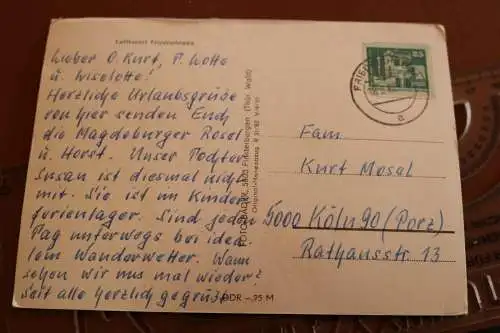 Luftkurort Friedrichroda
Lieber O. Kurt, T. Lotte
u. Liselotte!
Herzliche Urlaubsgrüße
von hier senden Euch
die Magdeburger Rosel
u. Horst. Unser Tochter
Susan ist diesmal nicht
mit. Sie ist im Kinder-
ferienlager. Sind jeden
Tag unterwegs bei idea-
lem Wanderwetter. Wann
sehen wir uns mal wieder?
Seid alle herzlich gegrüßt
DDR
Finsterbergen (Thür. Wald)
FRIED
Fam.
Kurt Mosal
5000 Köln 90 (Porz)
Rathausstr. 13